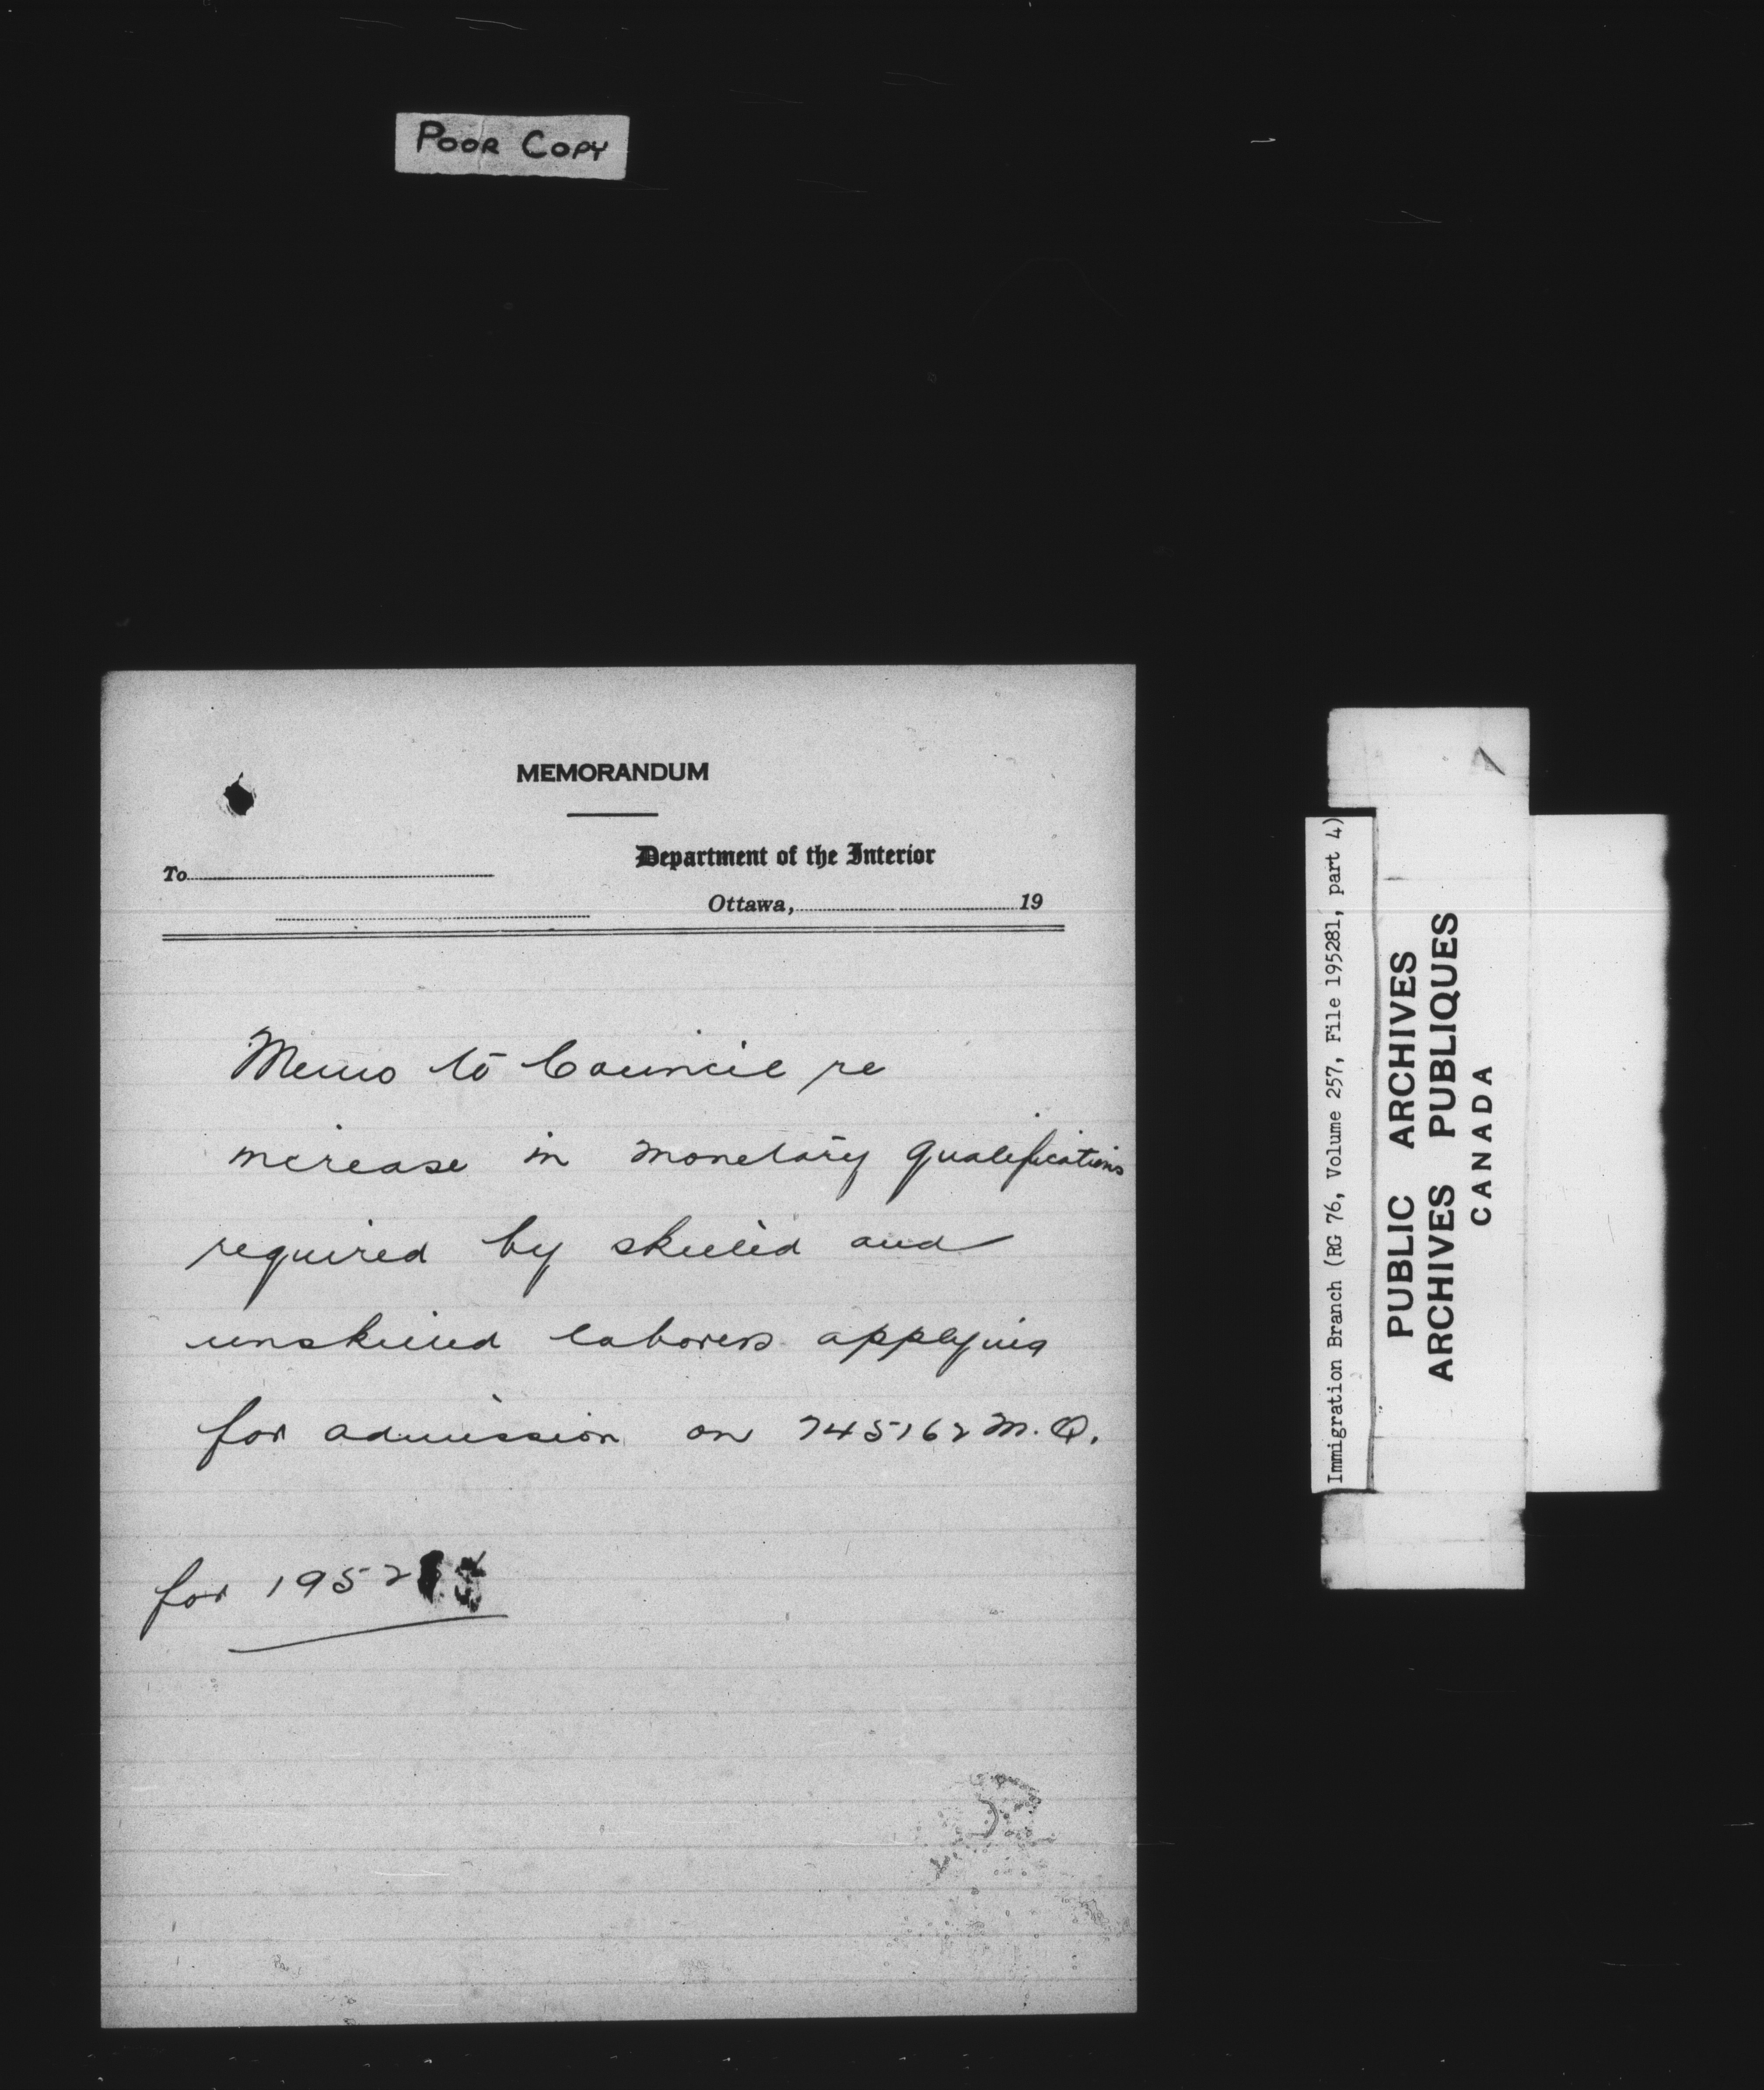 POOR COPY
MEMORANDUM
Department of the Interior
To
Ottawa, 19
Memo to Council re
increase in monetary qualifications
required by skilled and
unskilled laborers applying
for admission on 745162 M.Q.
for 1952
Immigration Branch (RG 76, Volume 257, File 195281, part 4)
PUBLIC ARCHIVES
ARCHIVES PUBLIQUES
CANADA